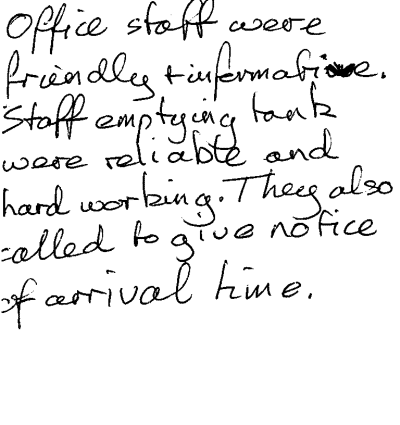 Office staff were
friendly + informative.
Staff emptying tank
were reliable and
hard working. They also
called to give notice
of arrival time.